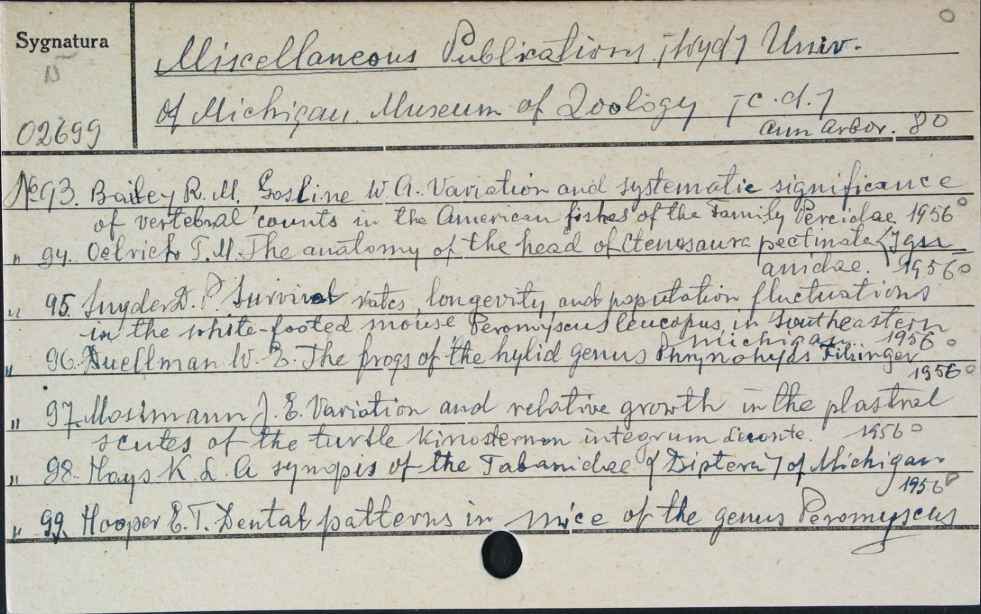 Sygnatura
N
02699
Miscellaneous Publications /wyd/ Univ.
of Michigan. Museum of Zoology /c.d./
Ann Arbor. 80
№ 93. Bailey R. M. Gosline W. A. Variation and systematic significance
of vertebral counts in the American fishes of the Family Percidae 1956
" 94. Oelrich T. M. The anatomy of the head of Ctenosaura pectinata (Igu
anidae. 1956
" 95. Snyder D. P. Survival rates, longevity and population fluctuations
in the white-footed mouse Peromyscus leucopus, in Southeastern
Michigan. 1956
" 96. Duellman W. E. The frogs of the hylid genus Phrynohyas Fitzinger
1956
" 97. Mosimann J. E. Variation and relative growth in the plastral
scutes of the turtle Kinosternon integrum Leconte. 1956
" 98. Hays K. L. A synopis of the Tabanidae (Diptera) of Michigan
1956
" 99. Hooper E. T. Dental patterns in mice of the genus Peromyscus